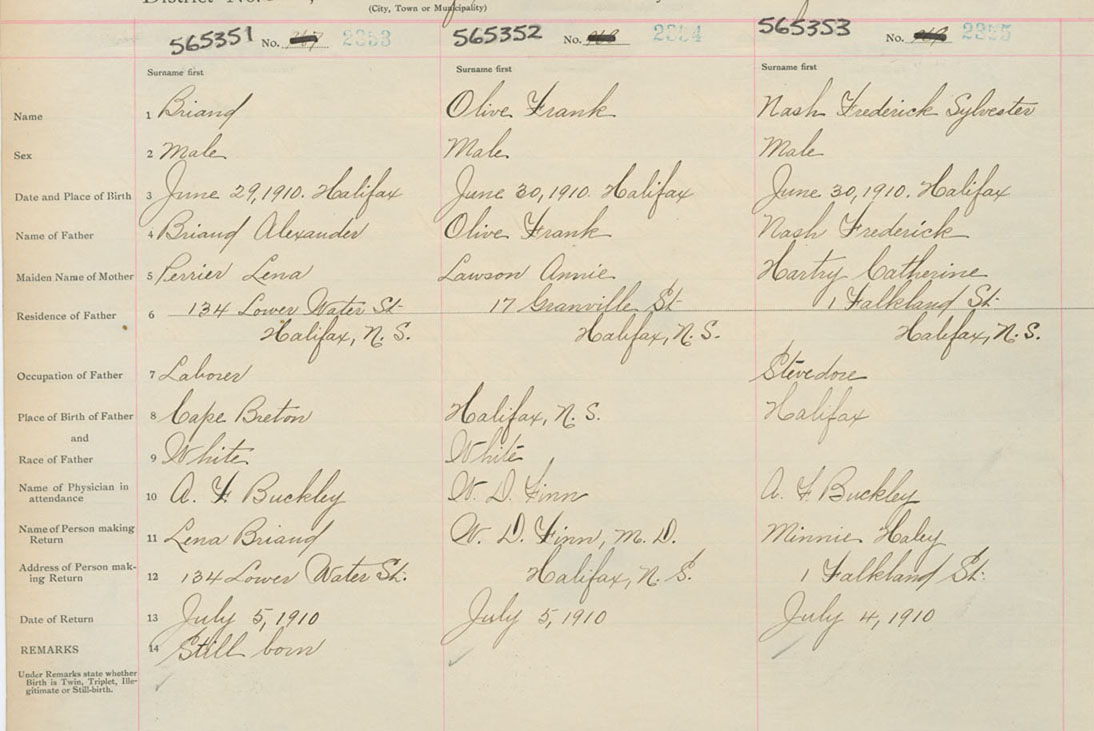 District No.
(City, Town or Municipality)
565351 No. 2353 565352 No. 2354 565353 No. 2355
Surname first Surname first Surname first
Name 1 Briand Olive Frank Nash Frederick Sylvester
Sex 2 Male Male Male
Date and Place of Birth 3 June 29, 1910. Halifax June 30, 1910. Halifax June 30, 1910. Halifax
Name of Father 4 Briand Alexander Olive Frank Nash Frederick
Maiden Name of Mother 5 Perrier Lena Lawson Annie Hartry Catherine
Residence of Father 6 134 Lower Water St. 17 Granville St. 1 Falkland St.
Halifax, N. S. Halifax, N. S. Halifax, N. S.
Occupation of Father 7 Laborer Stevedore
Place of Birth of Father 8 Cape Breton Halifax, N. S. Halifax
and
Race of Father 9 White White
Name of Physician in
attendance 10 A. F. Buckley W. D. Finn A. F Buckley
Name of Person making
Return 11 Lena Briand W. D. Finn, M. D. Minnie Haley
Address of Person mak-
ing Return 12 134 Lower Water St. Halifax, N. S. 1 Falkland St.
Date of Return 13 July 5, 1910 July 5, 1910 July 4, 1910
REMARKS 14 Still born
Under Remarks state whether
Birth is Twin, Triplet, Ille-
gitimate or Still-birth.